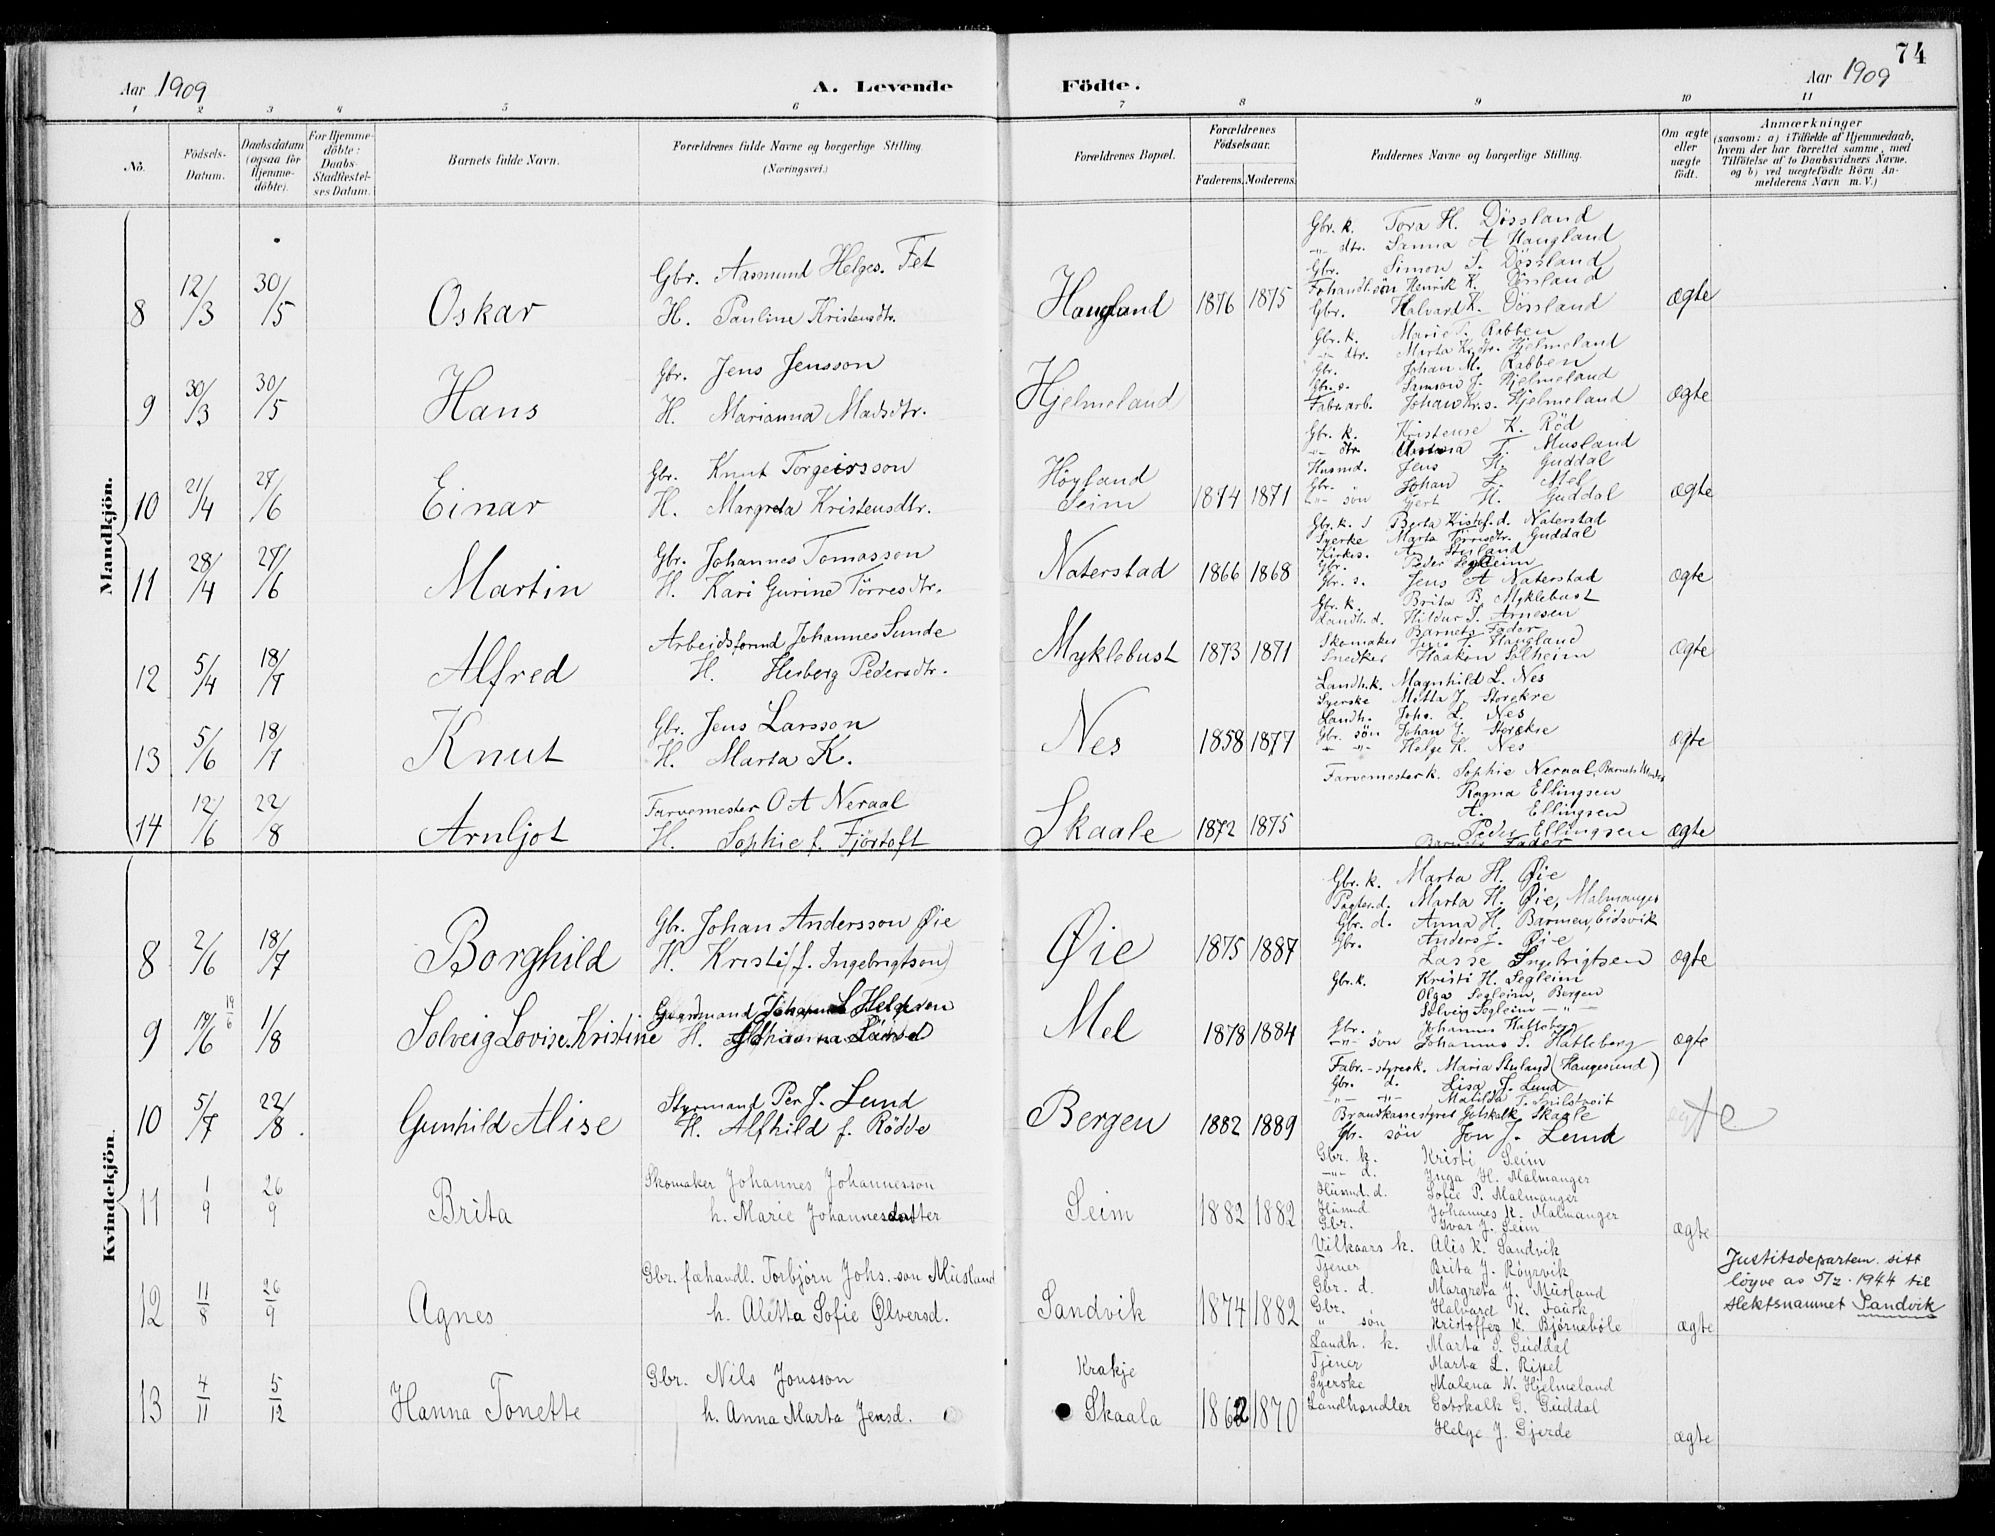 74
Aar 1909
A. Levende Födte.
Aar 1909
1 2 3 4 5 6 7 8 9 10 11
No.
Födsels-Datum.
Daabsdatum (ogsaa for Hjemme-döbte).
For Hjemme-döbte: Daabs-Stadfæstel-ses Datum.
Barnets fulde Navn.
Forældrenes fulde Navne og borgerlige Stilling. (Næringsvei.)
Forældrenes Bopæl.
Forældrenes Födselsaar.
Faderens. Moderens.
Faddernes Navne og borgerlige Stilling.
Om ægte eller uægte födt.
Anmærkninger
(saasom: a) i Tilfælde af Hjemmedaab,
hvem der har forrettet samme, med
Tilföielse af to Daabsvidners Navne.
og b) ved uægtefödte Börn An-
melderens Navn m. V.)
Mandkjön.
8 12/3 30/5 Oskar
Gbr. Aasmund Helges. Fet
H. Pauline Kristensdtr.
Haugland 1876 1875
Gbr. k. Tora H. Døssland
-"- dtr. Sanna A Haugland
Gbr. Simon S. Døssland
Henrik K. Døssland
Gbr. Halvard K. Døssland
ægte
9 30/3 30/5 Hans
Gbr. Jens Jensson
H. Marianna Madsdtr.
Hjelmeland
Gbr. k. Marie S. Rabben
-"- dtr. Marta Hjelmeland
Gbr. Johan M. Rabben
Gbr. s. Samson J. Hjelmeland
Fabr.arb. Johan Kr.s. Hjelmeland
ægte
10 21/4 27/6 Einar
Gbr. Knut Torgeirsson
H. Margreta Kristensdtr.
Høyland
Seim
1874 1871
Gbr. k. Kristense K. Röd
-"- dtr. T. Musland
Husmd. Jens H. Guddal
Gbr. Johan L. Mel
-"- søn Gert H. Guddal
ægte
11 28/4 27/6 Martin
Gbr. Johannes Tomasson
H. Kari Gurine Törresdtr.
Naterstad 1866 1868
Gbr. k. Berta Kristof.d. Naterstad
Syerke Marta Guddal
Kirkes. A.
Gbr. Peder Segleim
Gbr. s. Jens A Naterstad
ægte
12 5/4 18/7 Alfred
Arbeidsformd Johannes Sunde
H. Herborg Pedersdtr.
Myklebust 1873 1871
Gbr. k. Brita B. Myklebust
Landh. d. Hildur S. Arnesen
Barnets Fader
Skomaker Jens J. Haugland
Snedker Haakon Solheim
ægte
13 5/6 18/7 Knut
Gbr. Jens Larsson
H. Marta K.
Nes 1858 1877
Landh.k. Magnhild L. Nes
Syerske Metta J. Storekre
Landh. Johs. L. Nes
Gbr. søn Johan J. Storekre
-"- -"- Helge K. Nes
ægte
14 12/6 22/8 Arnljot
Farvemester O A Neraal
H. Sophie f. Fjörtoft
Skaale 1872 1875
Farvemester k. Sophie Neraal, Barnets Moder
Ragna Ellingsen
A. Ellingsen
Peder Ellingsen
Barnets Fader
ægte
Kvindekjön.
8 2/6 18/7 Borghild
Gbr. Johan Andersson Øie
H. Kristi (f. Ingebrigtson)
Øie 1875 1887
Gbr. k. Marta H. Øie
Pagter.d. Marta H. Øie, Malmanger
Gbr. d. Anna H. Barmen, Eidsvik
Gbr. Anders J. Øie
Lasse Ingebrigtsen
ægte
9 19/6 19/6 1/8 Solveig Lovise Kristine
Gaardmand Helgesen
H.
Mel 1878 1884
Gbr. k. Kristi H. Segleim
Olga Segleim, Bergen
Solveig Segleim -"-
Gbr. Johannes Hatleberg
-"- søn Johannes S. Hatleberg
ægte
10 5/7 22/8 Gunhild Alise
Styrmand Per J. Lund
H. Alfhild f. Rödde
Bergen 1882 1889
Fabr.-styresk. Maria Stuland (Haugesund)
Gbr. d. Lisa J. Lund
-"- -"- Matilda T.
Brandkassestyrer Gotskalk Skaale
Gbr. søn Jon J. Lund
ægte
11 1/9 26/9 Brita
Skomaker Johannes Johannesson
h. Marie Johannesdatter
Seim 1882 1882
Gbr. k. Kristi Seim
-"- d. Inga H. Malmanger
Husmd. d. Sofie P. Malmanger
Husmd Johannes K. Malmanger
Gbr. Ivar J. Seim
ægte
12 11/8 26/9 Agnes
Gbr. fæhandl. Torbjörn Johs.son Musland
h. Aletta Sofie Ølversd.
Sandvik 1874 1882
Vilkaars k. Alis K. Sandvik
Tjener Brita J. Röyrvik
Gbr. d. Margreta J. Musland
Gbr. Halvard K. Fausk
" søn Kristoffer K. Björnebøle
ægte
Justitsdepartem. sitt
løyve av 5/2. 1944 til
slektsnamnet Sandvik
13 4/11 5/12 Hanna Tonette
Gbr. Nils Jonsson
h. Anna Marta Jensd.
Krakje
Skaala
1862 1870
Landh. k. Marta G. Guddal
Tjener Marta L. Ripel
Syerske Malena N. Hjelmeland
Landhandler Gotskalk G. Guddal
Helge J. Gjerde
ægte